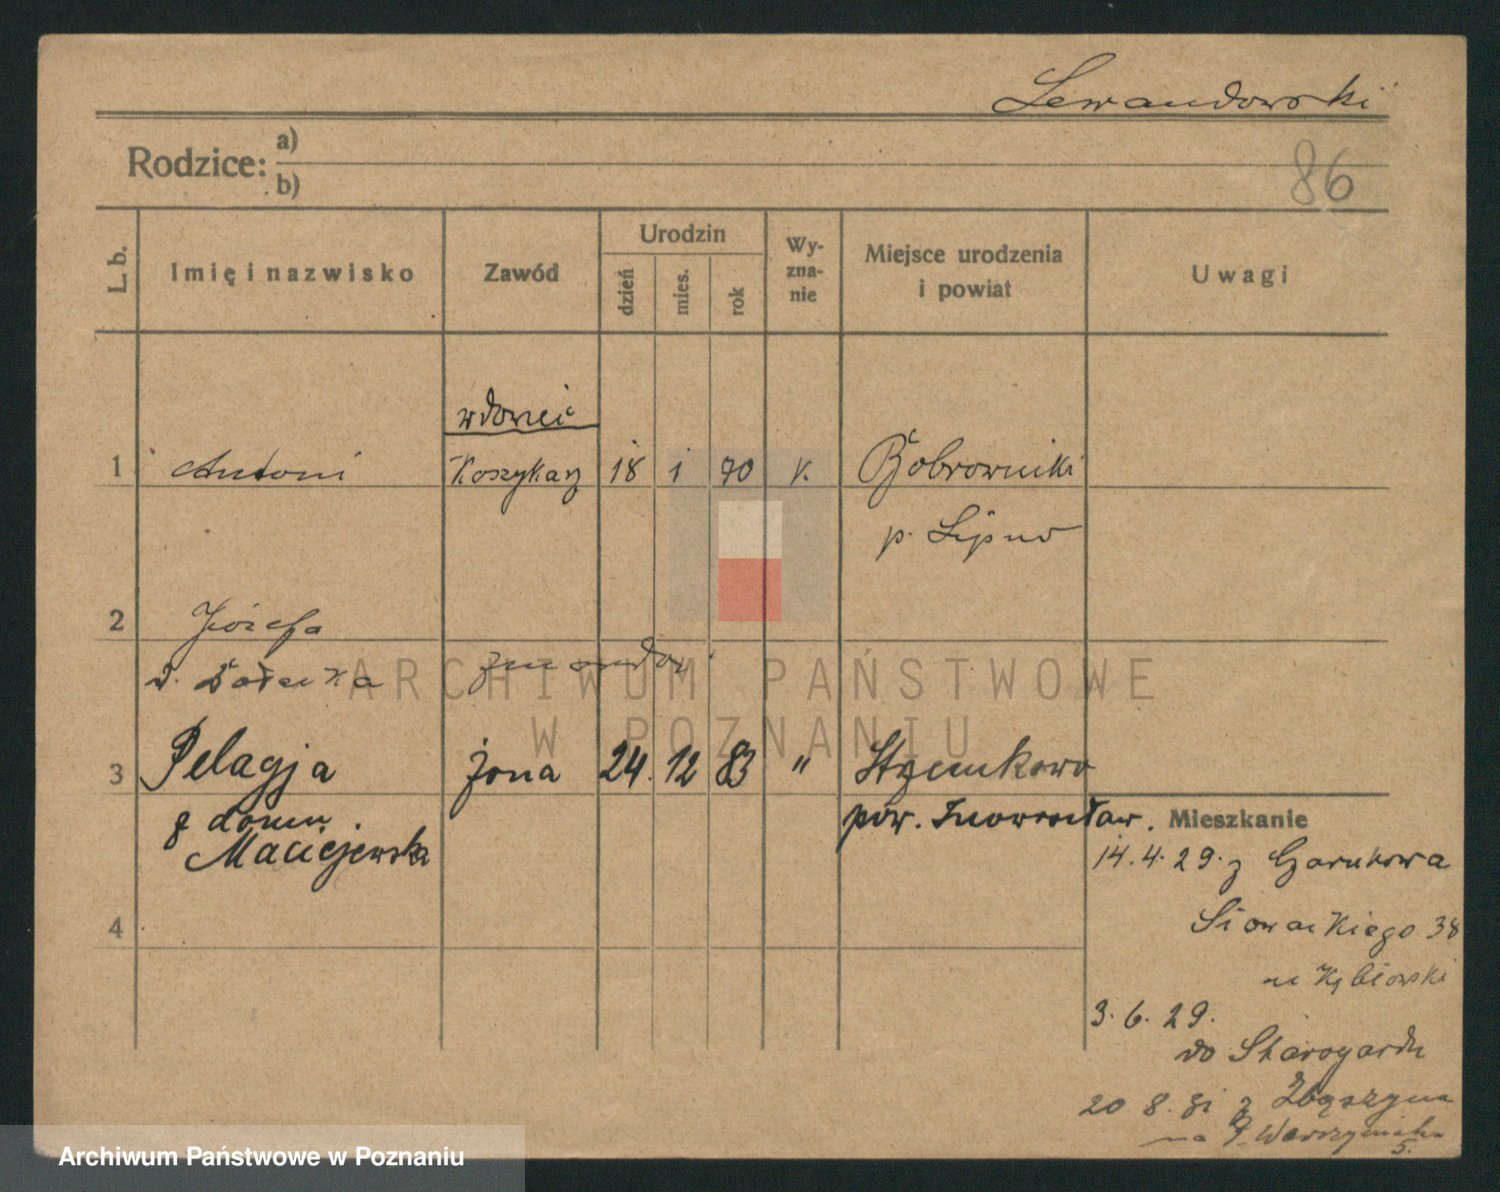 Lewandowski
Rodzice: a)
b)
86
L. b.
Imię i nazwisko
Zawód
Urodzin
dzień
mies.
rok
Wy-
zna-
nie
Miejsce urodzenia
i powiat
Uwagi
wdowiec
1 Antoni Koszykarz 18 1 70 k. Bobrowniki
p. Lipno
2 Józefa
d.
3 Pelagja żona 24. 12 83 " 
z domu
Maciejewska
pow. Inowrocław.
Mieszkanie
14.4.29. z Czarnkowa
Słowackiego 38
3.6.29.
do Starogardu
4
20 8. 31 z Zbąszynia
na
5.
ARCHIWUM PAŃSTWOWE
W POZNANIU
Archiwum Państwowe w Poznaniu